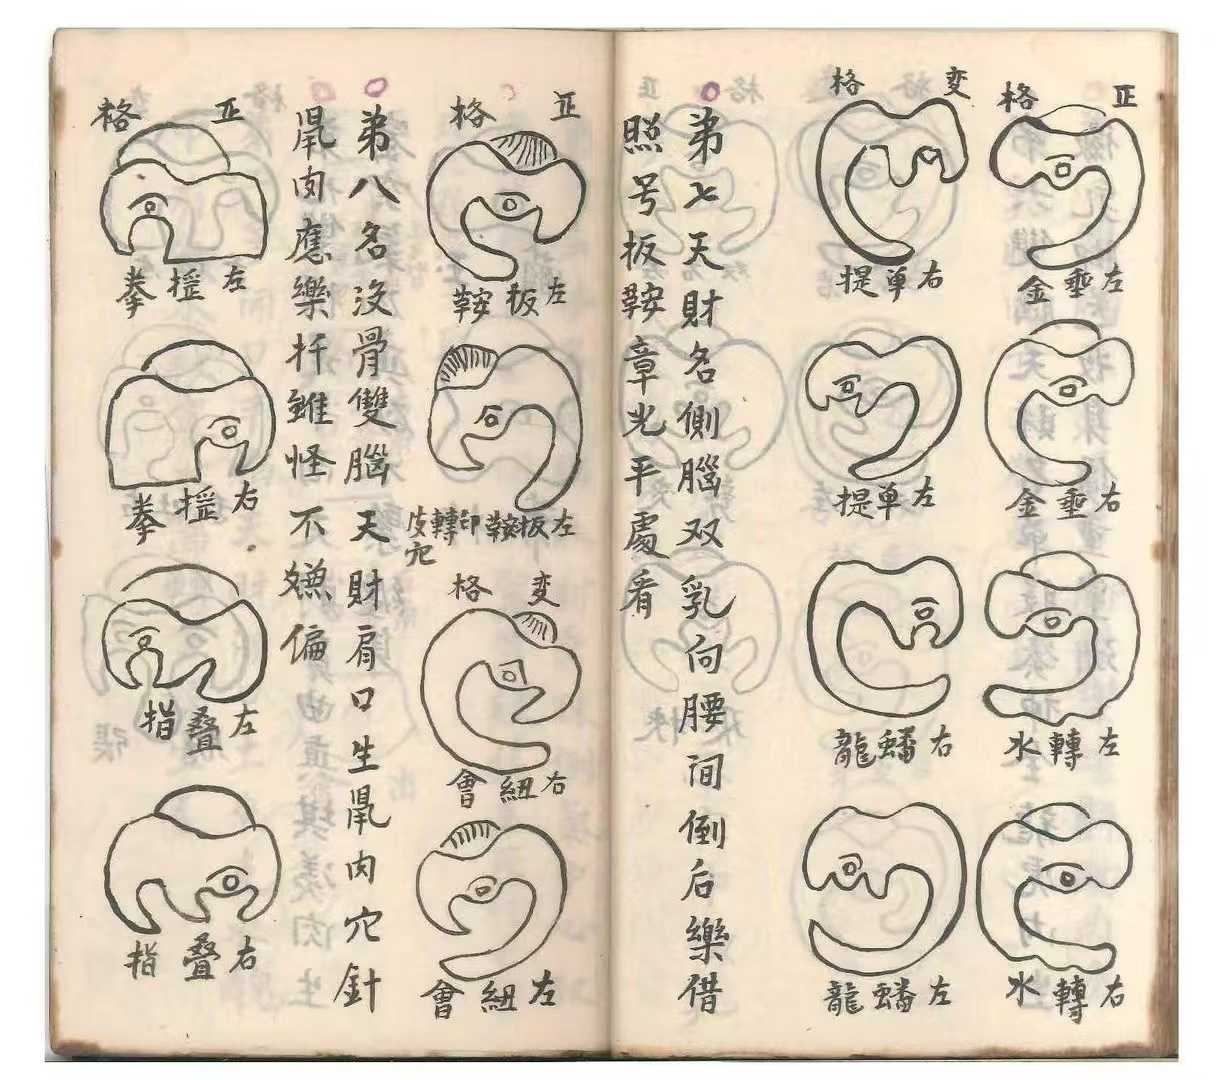 正格
左垂金
右垂金
左轉水
右轉水
变格
右单提
左单提
右蟠龍
左蟠龍
弟七天財名側腦双乳向腰间倒后樂借
照号扳鞍章光平處看
正格
左扳鞍
左扳鞍即轉皮穴
变格
右紐會
左紐會
弟八名没骨雙腦天財肩口生鼡肉穴針
鼡肉應樂扦雖怪不嫌偏
正格
左揑拳
右揑拳
左叠指
右叠指